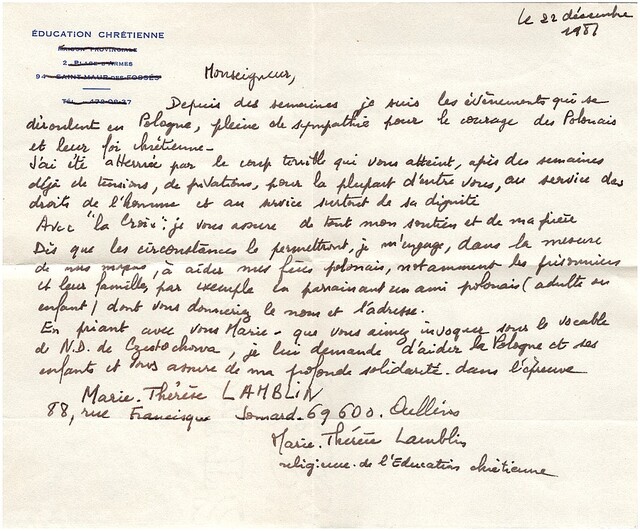 le 22 décembre
1981
ÉDUCATION CHRÉTIENNE
MAISON PROVINCIALE
2, PLACE D'ARMES
94 - SAINT-MAUR-DES-FOSSÉS
Monseigneur,
Depuis des semaines je suis les évènements qui se
déroulent en Pologne, pleine de sympathie pour le courage des Polonais
et leur foi chrétienne -
J'ai été atterrée par le coup terrible qui vous atteint, après des semaines
déjà de tensions, de privations, pour la plupart d'entre vous, au service des
droits de l'homme et au service surtout de sa dignité
Avec "la Croix": je vous assure de tout mon soutien et de ma prière
Dès que les circonstances le permettront, je m'engage, dans la mesure
de mes moyens, à aider mes frères polonais, notamment les prisonniers
et leur familles, par exemple en parrainant un ami polonais (adulte ou
enfant) dont vous donneriez le nom et l'adresse.
En priant avec vous Marie - que vous aimez invoquer sous le vocable
de N.D. de Czestochowa, je lui demande d'aider la Pologne et ses
enfants et vous assure de ma profonde solidarité dans l'épreuve
Marie-Thérèse LAMBLIN
88, rue Francisque Jomard - 69600 - Oullins
Marie-Thérèse Lamblin
religieuse de l'Education chrétienne